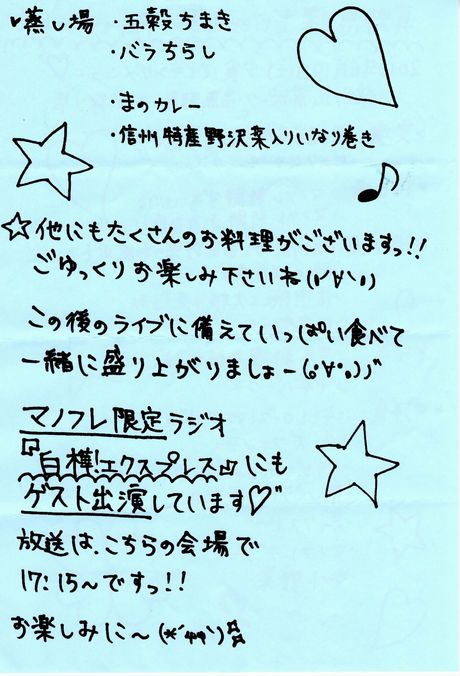 ♥蒸し場 ・五穀ちまき
・バラちらし
・まのカレー
・信州特産野沢菜入りいなり巻き
☆他にもたくさんのお料理がございますっ!!
ごゆっくりお楽しみ下さいね(ノ'∀'ヽ)
この後のライブに備えていっぱい食べて
一緒に盛り上がりましょー(๑'∀'๑)ノ"
マノフレ限定ラジオ
『白樺!エクスプレス』にも
ゲスト出演しています♡"
放送は、こちらの会場で
17:15〜ですっ!!
お楽しみに〜(*´艸`)☆